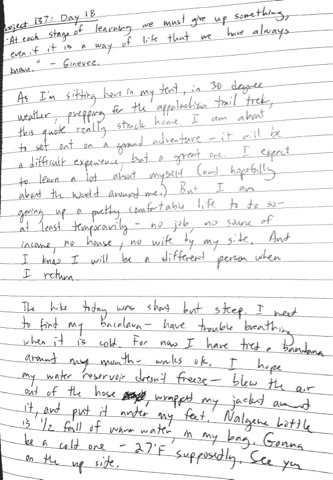 Project 137: Day 1B
"At each stage of learning we must give up something,
even if it is a way of life that we have always
known." - Ginevee.
As I'm sitting here in my tent, in 30 degree
weather, prepping for the appalachian trail trek,
this quote really struck home. I am about
to set out on a grand adventure - it will be
a difficult experience, but a great one. I expect
to learn a lot about myself (and hopefully
about the world around me.) But I am
giving up a pretty comfortable life to do so-
at least temporarily - no job, no source of
income, no house, no wife by my side. And
I know I will be a different person when
I return.
The hike today was short but steep. I need
to find my - have trouble breathing
when it is cold. For now I have tied a bandana
around my mouth - works ok. I hope
my water reservoir doesn't freeze - blew the air
out of the hose, wrapped my jacket around
it, and put it under my feet. Nalgene bottle
is 1/2 full of warm water, in my bag. Gonna
be a cold one - 27°F supposedly. See you
on the up site.